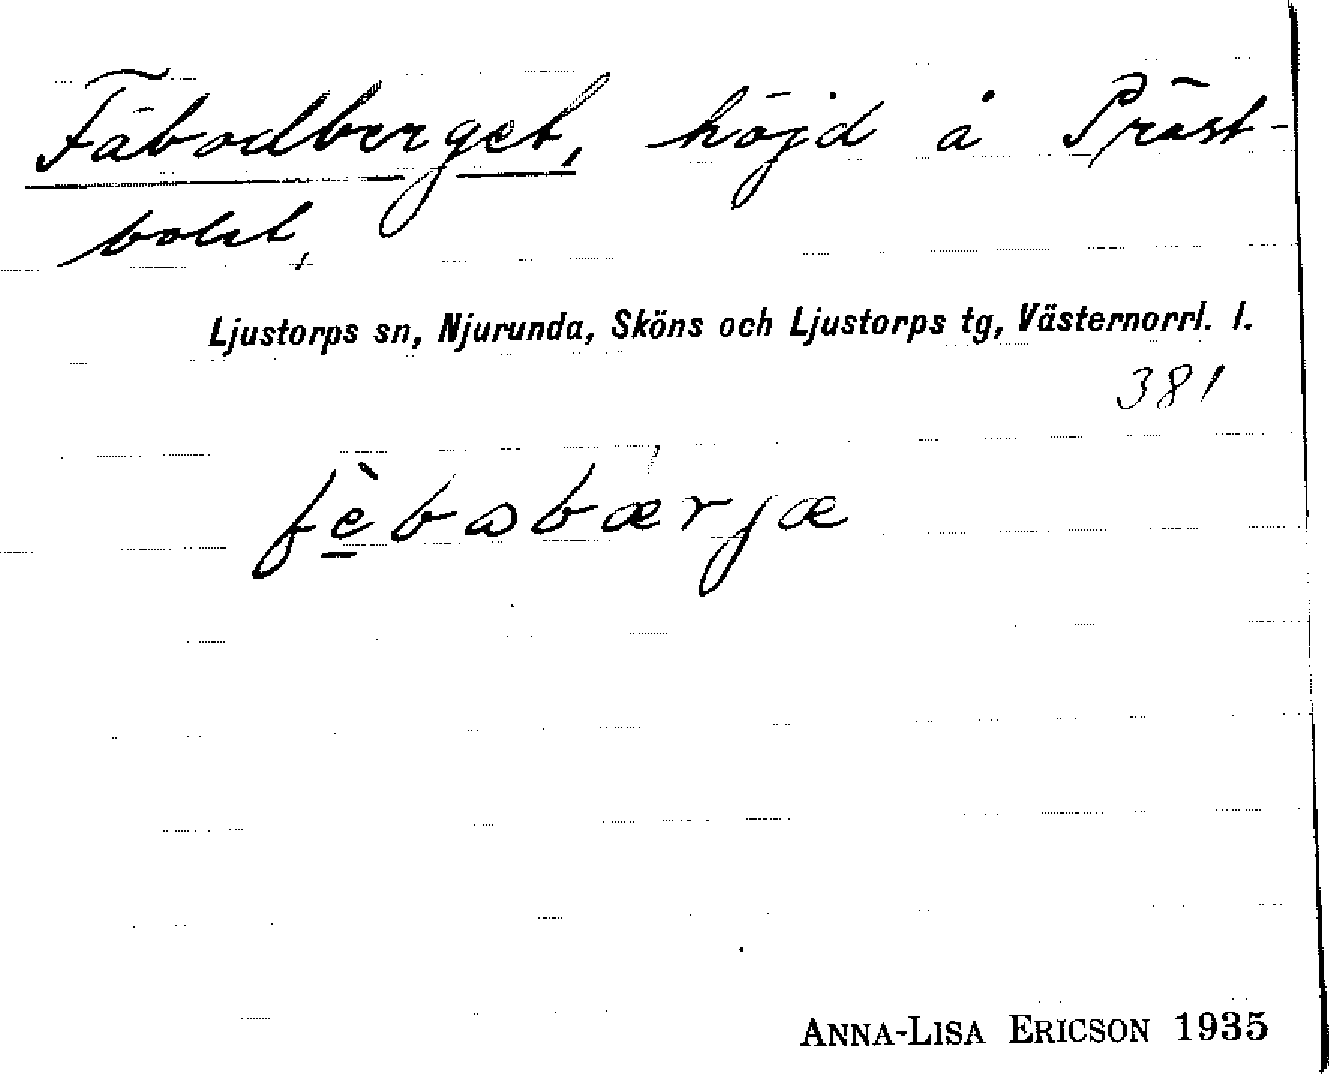 Fäbodberget, höjd å Präst-
bolet,
Ljustorps sn, Njurunda, Sköns och Ljustorps tg, Västernorrl. l.
381
fèbɷbærjæ
ANNA-LISA ERICSON 1935